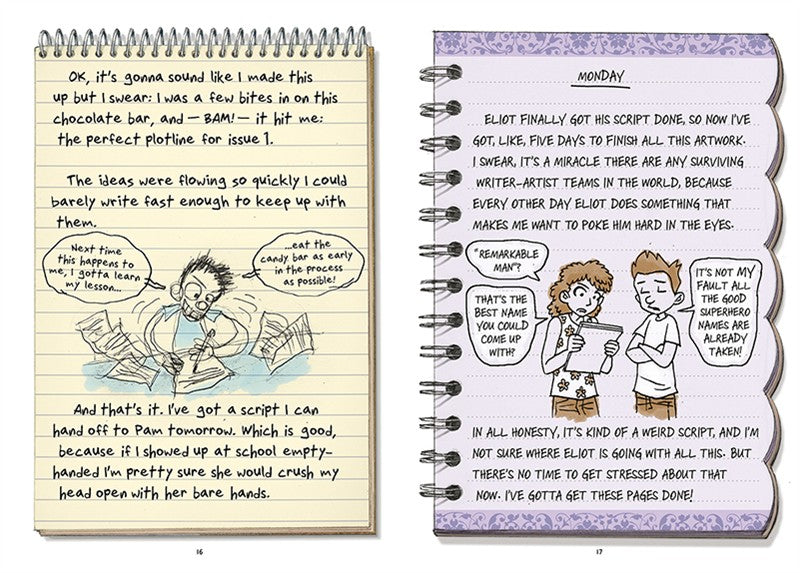 OK, it's gonna sound like I made this
up but I swear: I was a few bites in on this
chocolate bar, and — BAM! — it hit me:
the perfect plotline for issue 1.
The ideas were flowing so quickly I could
barely write fast enough to keep up with
them.
Next time
this happens to
me, I gotta learn
my lesson...
...eat the
candy bar as early
in the process
as possible!
And that's it. I've got a script I can
hand off to Pam tomorrow. Which is good,
because if I showed up at school empty-
handed I'm pretty sure she would crush my
head open with her bare hands.
16
MONDAY
ELIOT FINALLY GOT HIS SCRIPT DONE, SO NOW I'VE
GOT, LIKE, FIVE DAYS TO FINISH ALL THIS ARTWORK.
I SWEAR, IT'S A MIRACLE THERE ARE ANY SURVIVING
WRITER-ARTIST TEAMS IN THE WORLD, BECAUSE
EVERY OTHER DAY ELIOT DOES SOMETHING THAT
MAKES ME WANT TO POKE HIM HARD IN THE EYES.
"REMARKABLE
MAN"?
THAT'S THE
BEST NAME
YOU COULD
COME UP
WITH?
IT'S NOT MY
FAULT ALL
THE GOOD
SUPERHERO
NAMES ARE
ALREADY
TAKEN!
IN ALL HONESTY, IT'S KIND OF A WEIRD SCRIPT, AND I'M
NOT SURE WHERE ELIOT IS GOING WITH ALL THIS. BUT
THERE'S NO TIME TO GET STRESSED ABOUT THAT
NOW. I'VE GOTTA GET THESE PAGES DONE!
17